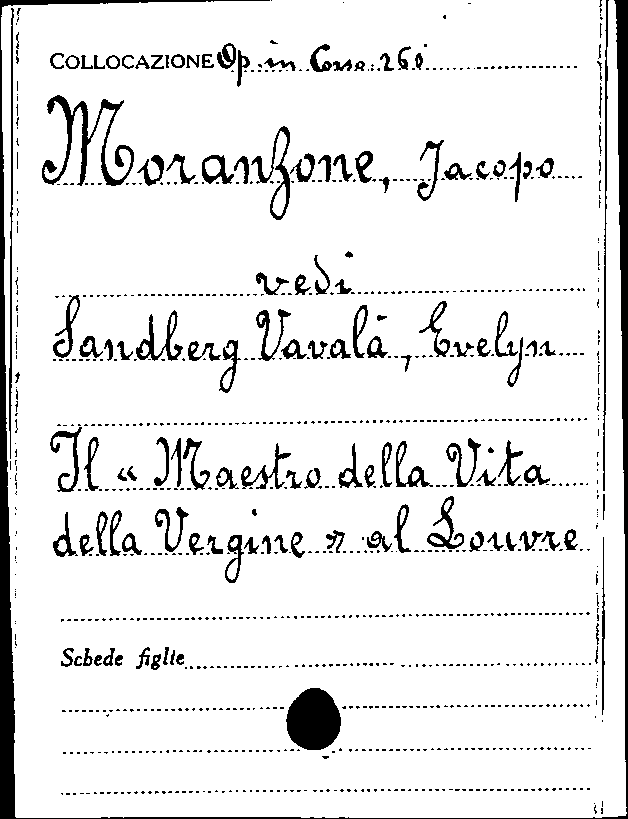 COLLOCAZIONE Op. in Corso. 260
Moranzone, Jacopo
vedi
Sandberg Vavalà, Evelyn
Il « Maestro della Vita
della Vergine » al Louvre
Schede figlie